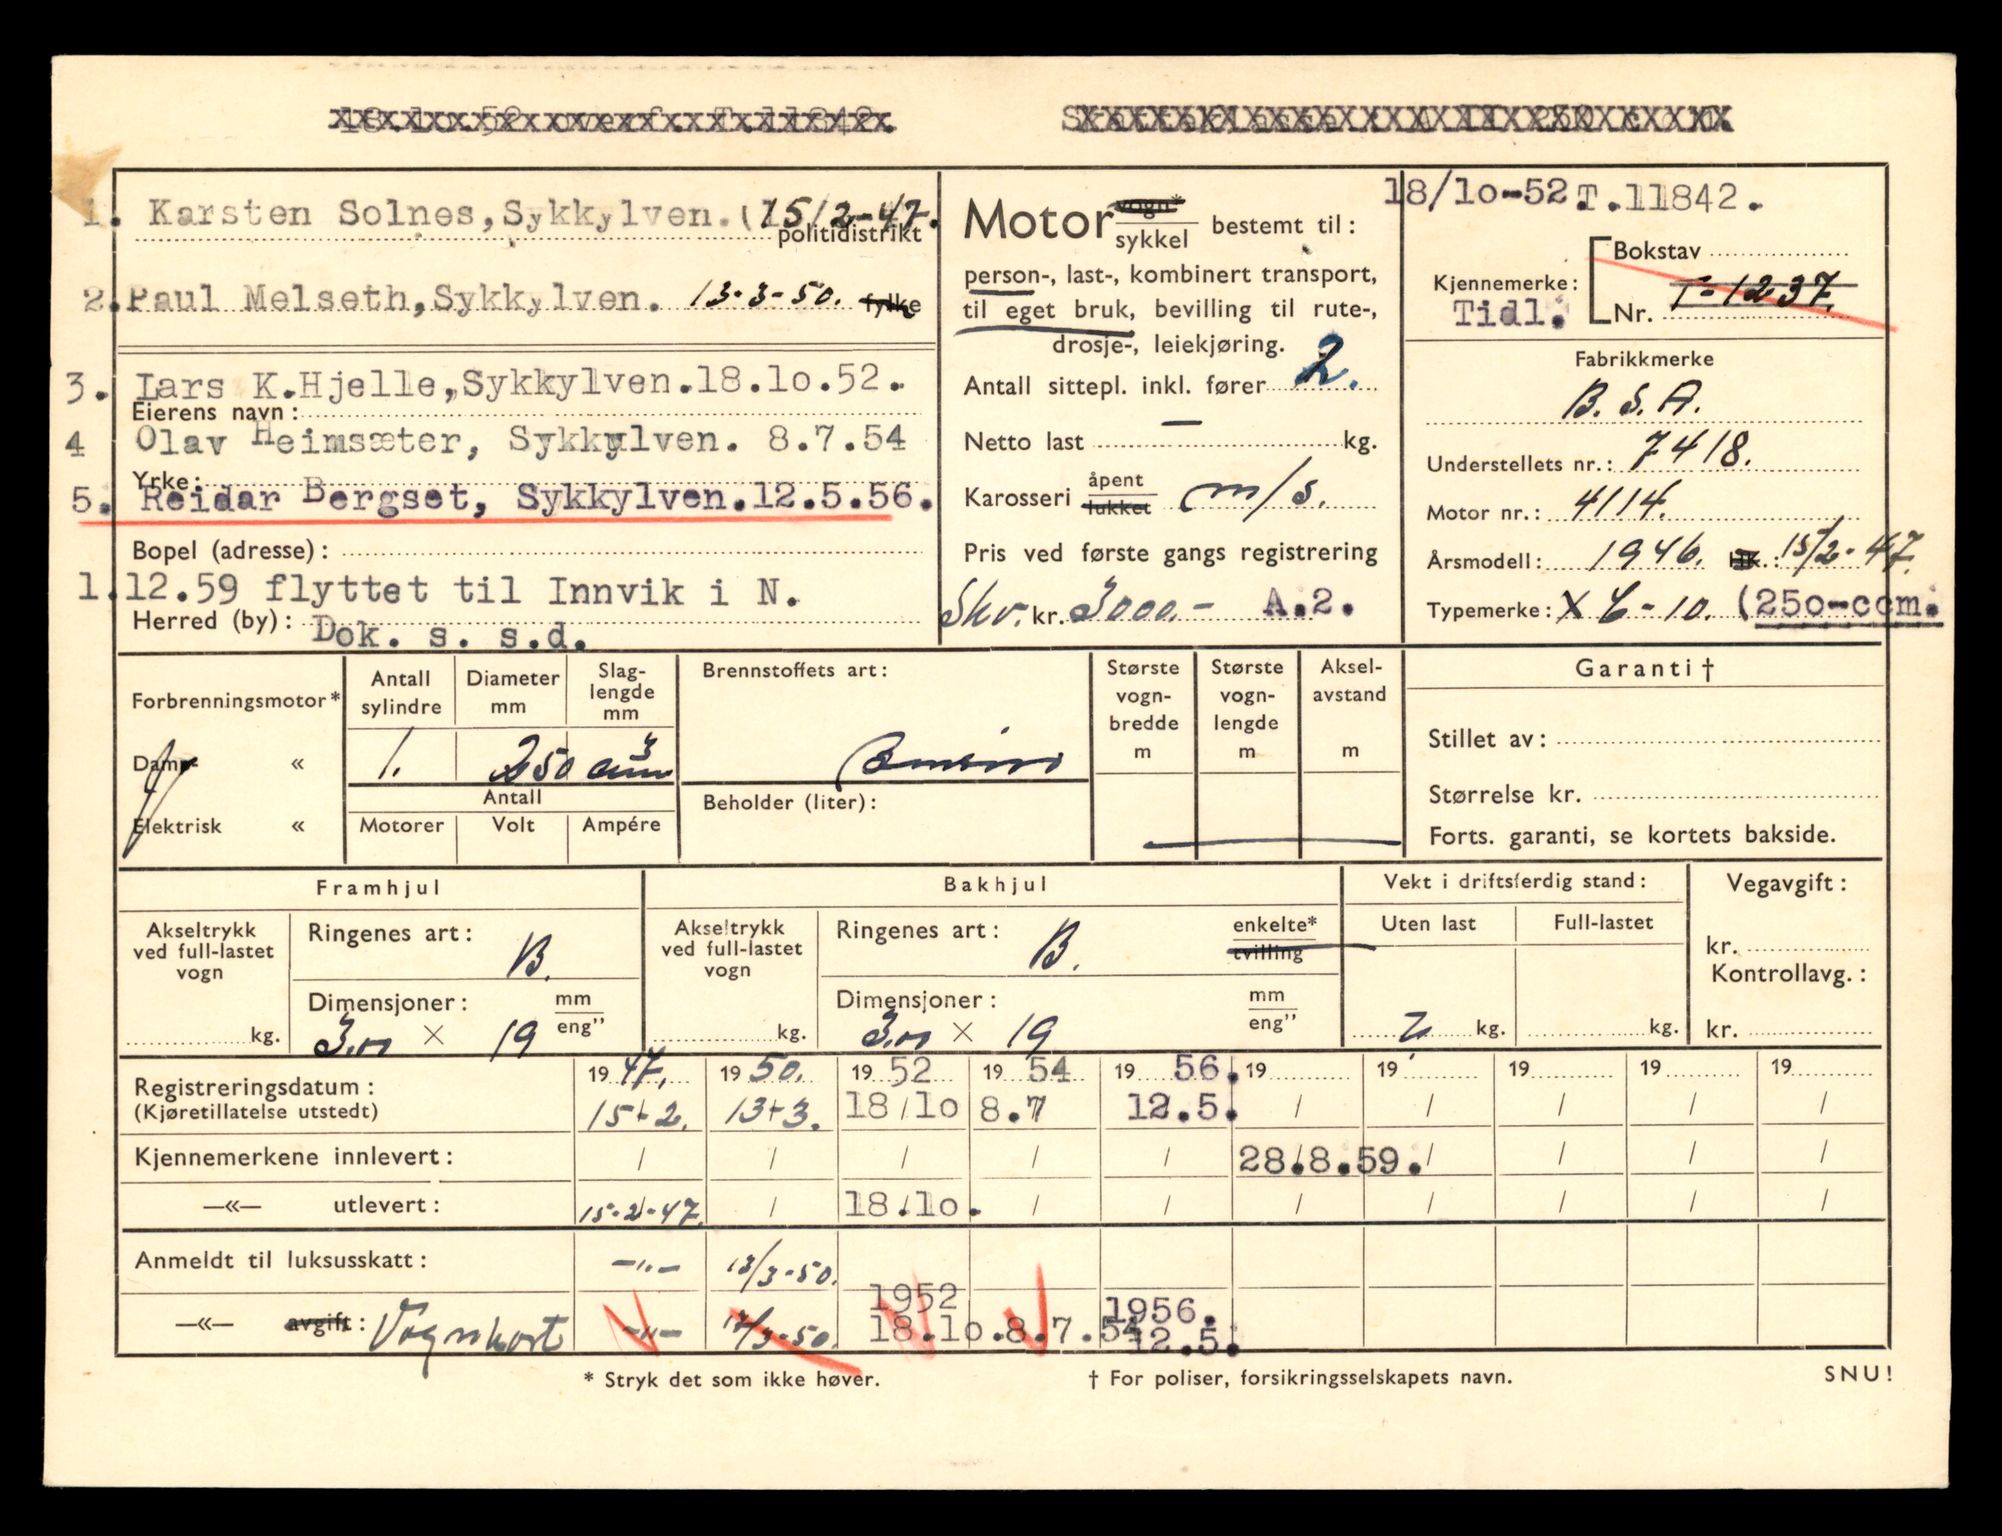 18.10.52 overf. T.11842.
1. Karsten Solnes, Sykkylven. (15/2-47.
politidistrikt
2. Paul Melseth, Sykkylven. 13-3-50. fylke
3. Lars K.Hjelle, Sykkylven.18.10.52.
Eierens navn:
4 Olav Heimsæter, Sykkylven. 8.7.54
Yrke:
5. Reidar Bergset, Sykkylven.12.5.56.
Bopel (adresse):
1.12.59 flyttet til Innvik i N.
Herred (by): Dok. s. s.d.
Motor vogn*
sykkel bestemt til:
person-, last-, kombinert transport,
til eget bruk, bevilling til rute-,
drosje-, leiekjøring.
Antall sittepl. inkl. fører 2.
Netto last — kg.
Karosseri åpent
lukket m/s.
Pris ved første gangs registrering
Skv. kr. 3000.- A.2.
18/10-52 T.11842.
Kjennemerke: Bokstav
Tidl. Nr. T-1237.
Fabrikkmerke
B.S.A.
Understellets nr.: 7418.
Motor nr.: 4114.
Årsmodell: 1946. HK.: 15/2-47.
Typemerke: X C-10. (250-ccm.
Forbrenningsmotor*
Damp- «
Elektrisk «
Antall sylindre
Diameter mm
Slag-lengde mm
1. 250 cm3
Antall
Motorer Volt Ampére
Brennstoffets art:
Bensin
Beholder (liter):
Største vogn-bredde m
Største vogn-lengde m
Aksel-avstand m
Garanti †
Stillet av:
Størrelse kr.
Forts. garanti, se kortets bakside.
Framhjul
Akseltrykk ved full-lastet vogn
kg.
Ringenes art: B.
Dimensjoner: mm
eng”
3.00 × 19
Bakhjul
Akseltrykk ved full-lastet vogn
kg.
Ringenes art: B. enkelte*
tvilling
Dimensjoner: mm
eng”
3.00 × 19
Vekt i driftsferdig stand:
Uten last Full-lastet
kg. kg.
Vegavgift:
kr.
Kontrollavg.:
kr.
Registreringsdatum: 19 47. 19 50. 19 52 19 54 19 56. 19 19 19 19 19
(Kjøretillatelse utstedt) 15/2. 13/3. 18/10 8.7 12.5. / / / / /
Kjennemerkene innlevert: / / / / / 28.8.59. / / / /
—«— utlevert: 15-2-47. / 18/10. / / / / / / /
Anmeldt til luksusskatt: -"- 13/3-50.
—«— avgift: Vognkort -"- 17/3-50. 1952 18.10. 8.7.54 1956. 12.5.
* Stryk det som ikke høver.
† For poliser, forsikringsselskapets navn.
SNU!